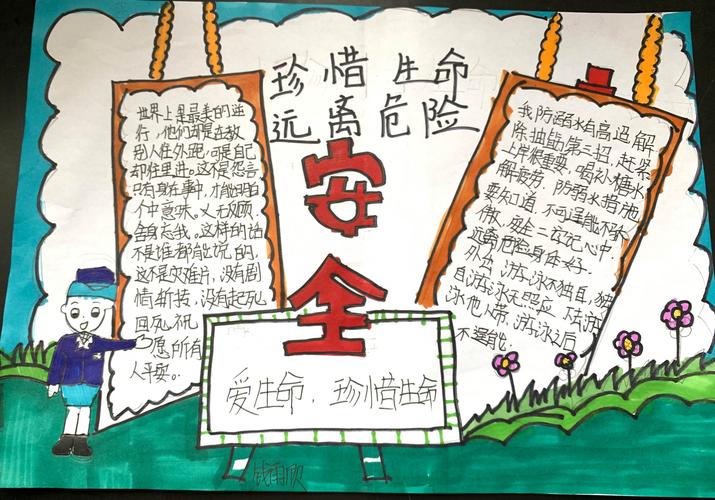 珍惜生命
远离危险
安全
世界上最美的逆
行，他们却是在教
别人往外跑，可是自己
却往里进。这不是怨言
只有身在事中，才能明白
个中意味。义无反顾
舍身忘我。这样的话
不是谁都能说的，
这不是灾难片，没有剧
情斩技，没有起死
回死祝
愿所有
人平安。
我防溺水有高温解
除抽筋第三招，赶紧
上岸很重要，喝补糖水
解疲劳，防溺水措施
要知道，不可逞能不求
救，安全二字记心中
远离危险身体好。
外公，游泳不独自，独
自游泳无照应，下去游
泳他人带，游泳之后
不逞能
爱生命，珍惜生命
钱雨欣